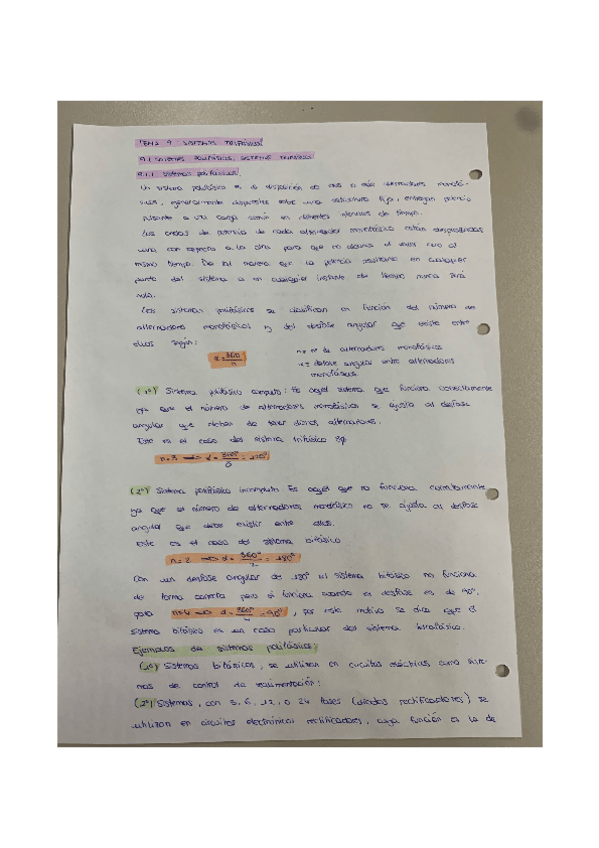 TEMA 9: SISTEMAS TRIFÁSICOS
9.1 SISTEMAS POLIFÁSICOS. SISTEMAS TRIFÁSICOS
9.1.1 Sistemas polifásicos
Un sistema polifásico es la disposición de dos o más alternadores monofá-
sicos, generalmente dispuestos entre una estructura fija, entregan potencia
pulsante a una carga común en diferentes intervalos de tiempo.
Las ondas de potencia de cada alternador monofásico están desplazadas
una con respecto a la otra para que no alcance el valor cero al
mismo tiempo. De tal manera que la potencia resultante en cualquier
punto del sistema o en cualquier instante de tiempo nunca será
nula.
Los sistemas polifásicos se clasifican en función del número de
alternadores monofásicos y del desfase angular que existe entre
ellos según:
α = 360/n
n = nº de alternadores monofásicos
α = desfase angular entre alternadores
monofásicos.
(1º) Sistema polifásico completo: Es aquel sistema que funciona correctamente
ya que el número de alternadores monofásicos se ajusta al desfase
angular que deben de tener dichos alternadores.
Este es el caso del sistema trifásico 3φ
n=3 → α = 360º/ = 120º
(2º) Sistema polifásico incompleto: Es aquel que no funciona correctamente
ya que el número de alternadores monofásico no se ajusta al desfase
angular que debe existir entre ellos.
Este es el caso del sistema bifásico
n=2 → α = 360º/2 = 180º
Con un desfase angular de 180º el sistema bifásico no funciona
de forma correcta pero si funciona cuando el desfase es de 90º,
para n=4 → α = 360º/4 = 90º, por este motivo se dice que el
sistema bifásico es un caso particular del sistema tetrafásico.
Ejemplos de sistemas polifásicos:
(1º) Sistemas bifásicos, se utilizan en circuitos eléctricos como siste-
mas de control de realimentación:
(2º) Sistemas, con 3, 6, 12, o 24 fases (diodos rectificadores) se
utilizan en circuitos electrónicos rectificadores, cuya función es la de